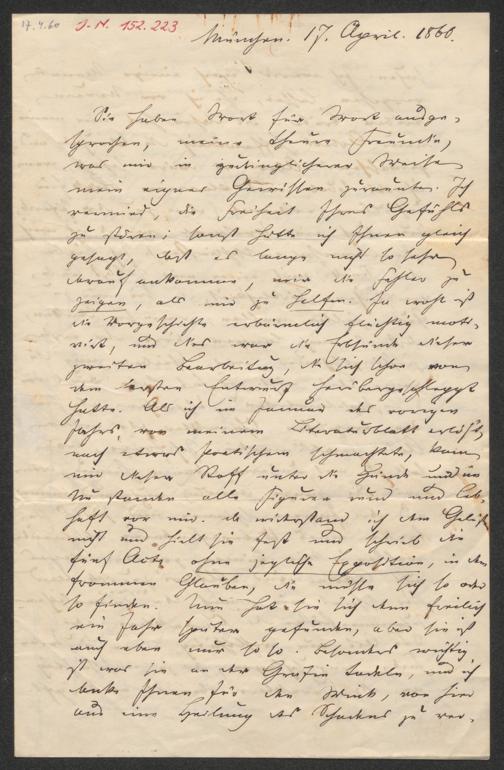 17.4.60 J. N. 152.223
München. 17. April. 1860.
Sie haben Wort für Wort ausge-
sprochen, meine theure Freundin,
was mir in zudringlicherer Weise
mein eignes Gewissen zuraunte. Ich
vermied, die Freiheit Ihres Gefühls
zu stören; sonst hätte ich Ihnen gleich
gesagt, daß es lange nicht so sehr
darauf ankomme, mir die Fehler zu
zeigen, als mir zu helfen. Ja wohl ist
die Vorgeschichte erbärmlich flüchtig moti-
virt, und dies war die Erbsünde dieser
zweiten Bearbeitung, die sich schon von
dem ersten Entwurf herübergeschleppt
hatte. Als ich im Januar des vorigen
Jahrs, von meinem Literaturblatt erlöst,
nach etwas Poetischem schmachtete, kam
mir dieser Stoff unter die Hände und im
Nu standen alle Figuren rund und leb-
haft vor mir. da widerstand ich dem Gelüst
nicht und hielt sie fest und schrieb die
fünf Acte ohne jegliche Exposition, in dem
frommen Glauben, die müsse sich so oder
so finden. Nun hat sie sich denn freilich
ein Jahr später gefunden, aber sie ist
auch eben nur so so. Besonders wichtig
ist was Sie an der Gräfin tadeln, und ich
danke Ihnen für den Wink, von hier
aus eine Heilung des Schadens zu ver-